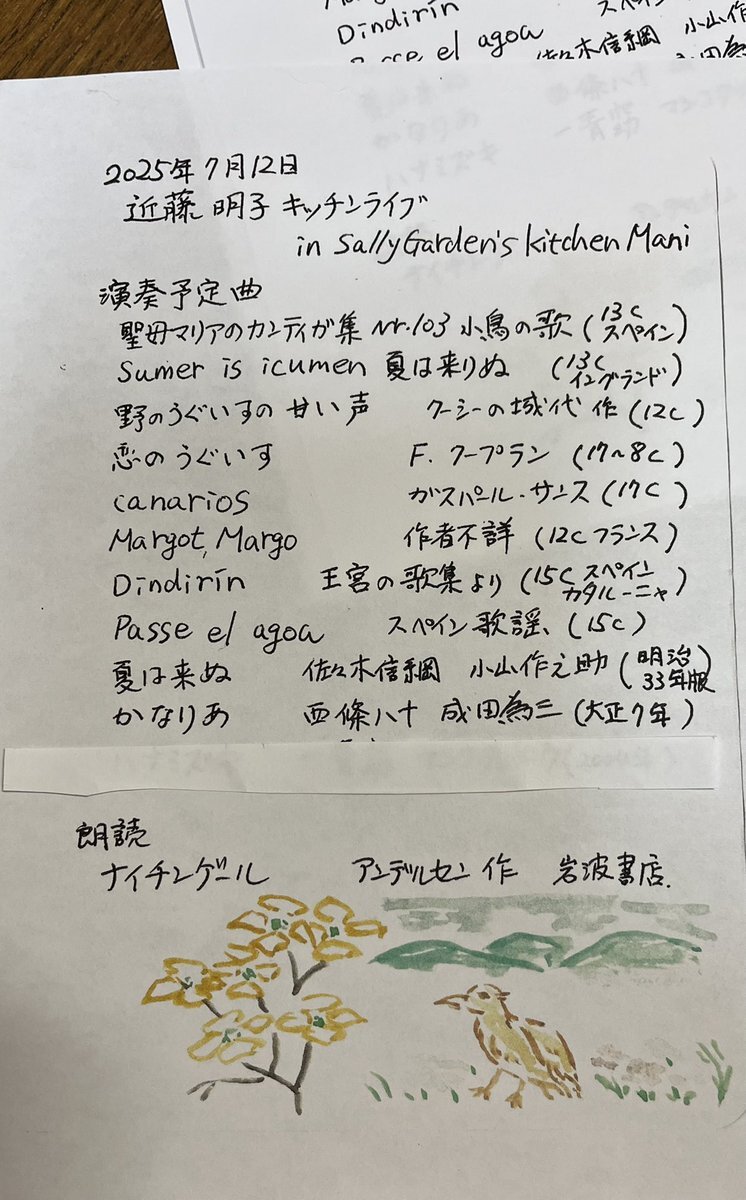 Dindirín スペイン
Passe el agoa 佐々木信綱 小山作
成田為
2025年7月12日
近藤明子 キッチンライブ
in SallyGarden's kitchen Mani
演奏予定曲
聖母マリアのカンティガ集 Nr.103 小鳥の歌 (13C スペイン)
Sumer is icumen 夏は来りぬ (13C イングランド)
野のうぐいすの甘い声 クーシーの城代 作 (12C)
恋のうぐいす F. クープラン (17~8C)
canarios ガスパール・サンス (17C)
Margot, Margo 作者不詳 (12C フランス)
Dindirín 王宮の歌集より (15C スペイン カタルーニャ)
Passe el agoa スペイン歌謡、(15C)
夏は来ぬ 佐々木信綱 小山作之助 (明治33年版)
かなりあ 西條八十 成田為三 (大正7年)
朗読
ナイチンゲール アンデルセン 作 岩波書店.